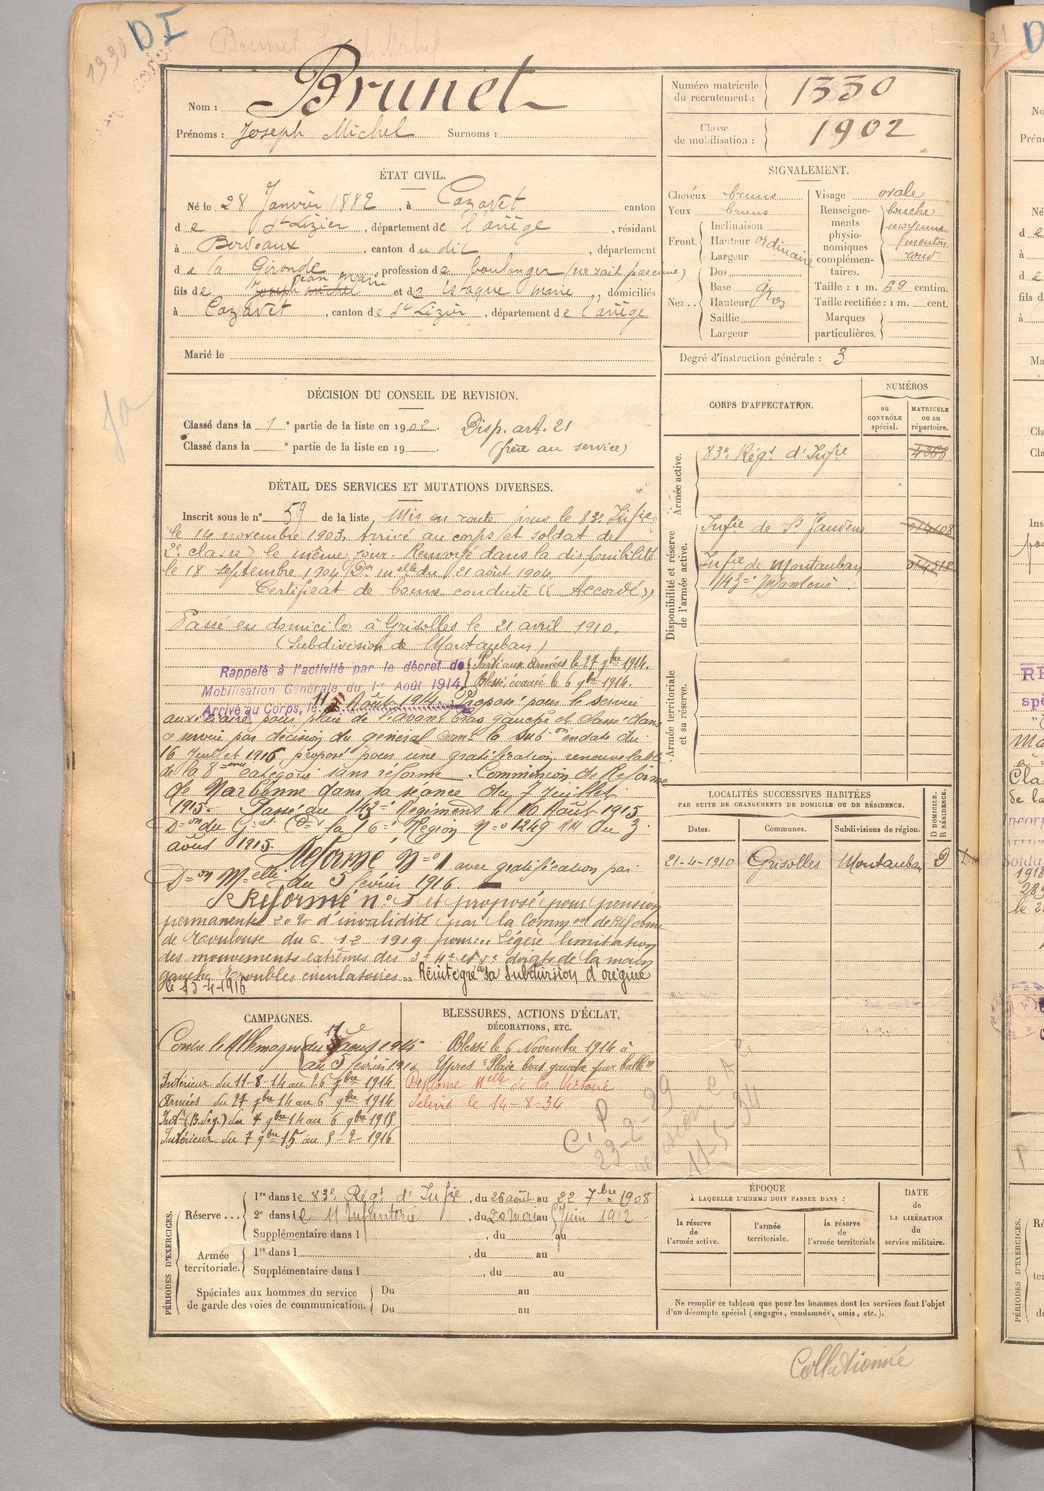 1330
DI
Brunet Joseph Michel
Nom : Brunet
Prénoms : Joseph Michel Surnoms :
Numéro matricule du recrutement : 1330
Classe de mobilisation : 1902
ÉTAT CIVIL.
Né le 28 Janvier 1882, à Cazavet canton
de St Lizier, département de l'Ariège, résidant
à Bordeaux, canton du dit, département
de la Gironde, profession de boulanger (ne sait pas
fils de Jean Marie et de Marie, domiciliés
à Cazavet, canton de St Lizier, département de l'Ariège
Marié le
SIGNALEMENT.
Cheveux bruns
Yeux bruns
Front. Inclinaison
Hauteur ordinaire
Largeur
Nez.. Dos
Base
Hauteur gros
Saillie
Largeur
Visage ovale
Renseignements physionomiques complémentaires. bouche moyenne menton rond
Taille : 1 m. 69 centim.
Taille rectifiée : 1 m. cent.
Marques particulières.
Degré d'instruction générale : 3
DÉCISION DU CONSEIL DE REVISION.
Classé dans la 1e partie de la liste en 1902. Disp. art. 21
Classé dans la e partie de la liste en 19 . (frère au service)
DÉTAIL DES SERVICES ET MUTATIONS DIVERSES.
Inscrit sous le n° 59 de la liste Mis en route pour le 83e Infie
le 14 novembre 1903. Arrivé au corps et soldat de
2e classe le même jour. Renvoyé dans la disponibilité
le 18 septembre 1904 Don mlle du 21 août 1904.
Certificat de bonne conduite "Accordé"
Passé en domicile à Grisolles le 21 avril 1910.
(Subdivision de Montauban)
Rappelé à l'activité par le décret de
Mobilisation Générale du 1er Août 1914
Arrivé au Corps, le 11 Août 1914
Parti aux armées le 27 9bre 1914.
Blessé, évacué le 6 9bre 1914.
Proposé pour le service
auxiliaire pour plaie de l'avant bras gauche et classé dans
ce service par décision du général Comt la Sub.on en date du
16 Juillet 1915 proposé pour une gratification renouvelable
de la 8eme catégorie sans réforme. Commission de Réforme
de Narbonne dans sa séance du 7 Juillet
1915. Passé au 143e Régiment le 10 Août 1915
Don du Gal Ct la 16e Région No 1249 du 3
août 1915. Réformé No 1 avec gratification par
Don Melle du 5 février 1916
Réformé n° 1 et proposé pour pension
permanente 20 % d'invalidité par la Common de Réforme
de Toulouse du 6 12 1919 pour "Légère limitation
des mouvements extrêmes des 3e 4e et 5e doigts de la main
gauche troubles circulatoires". Réintégré sa Subdivision d'origine
le 15-4-1916
CORPS D'AFFECTATION.
NUMÉROS
au CONTRÔLE spécial.
MATRICULE ou au répertoire.
Armée active.
83e Régt d'Infie
Disponibilité et réserve de l'armée active.
Infie de St Gaudens
Infie de Montauban
143e Infanterie
Armée territoriale et sa réserve.
LOCALITÉS SUCCESSIVES HABITÉES
PAR SUITE DE CHANGEMENTS DE DOMICILE OU DE RÉSIDENCE.
D DOMICILE. R RÉSIDENCE.
Dates. Communes. Subdivisions de région.
21-4-1910 Grisolles Montauban D
CAMPAGNES.
Contre l'Allemagne du août 1914
au 5 février 1916
Intérieur du 11-8-14 au 26 9bre 1914.
Armées du 27 9bre 14 au 6 9bre 1914.
Intr (B. de g.) du 7 9bre 14 au 6 9bre 1915
Intérieur du 7 9bre 15 au 5-2-1916
BLESSURES, ACTIONS D'ÉCLAT, DÉCORATIONS, ETC.
Blessé le 6 Novembre 1914 à
Ypres "Plaie bras gauche par balle"
Diplôme Mlle de la Victoire
délivré le 14-8-34
C. P
23-2-29
11-5-34
PÉRIODES D'EXERCICES.
Réserve ... 1re dans le 83e Régt d'Infie, du 26 août au 22 7bre 1908
2e dans le 11 Infanterie, du 20 Mai au 5 Juin 1912
Supplémentaire dans l , du au
Armée territoriale. 1re dans l , du au
Supplémentaire dans l , du au
Spéciales aux hommes du service de garde des voies de communication. Du au
Du au
ÉPOQUE
À LAQUELLE L'HOMME DOIT PASSER DANS :
la réserve de l'armée active.
l'armée territoriale.
la réserve de l'armée territoriale
DATE DE LA LIBÉRATION du service militaire.
Ne remplir ce tableau que pour les hommes dont les services font l'objet
d'un décompte spécial (engagés, condamnés, omis, etc.).
Collationné